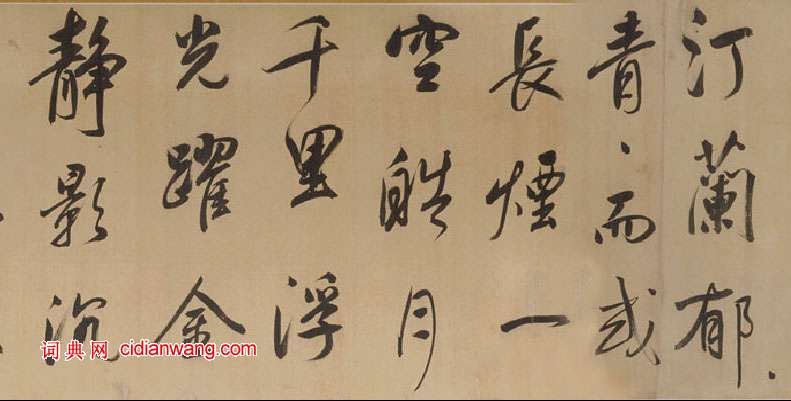 汀蘭郁、
青、而或
長煙一
空皓月
千里浮
光躍金
静影沉
词典网 cidianwang.com